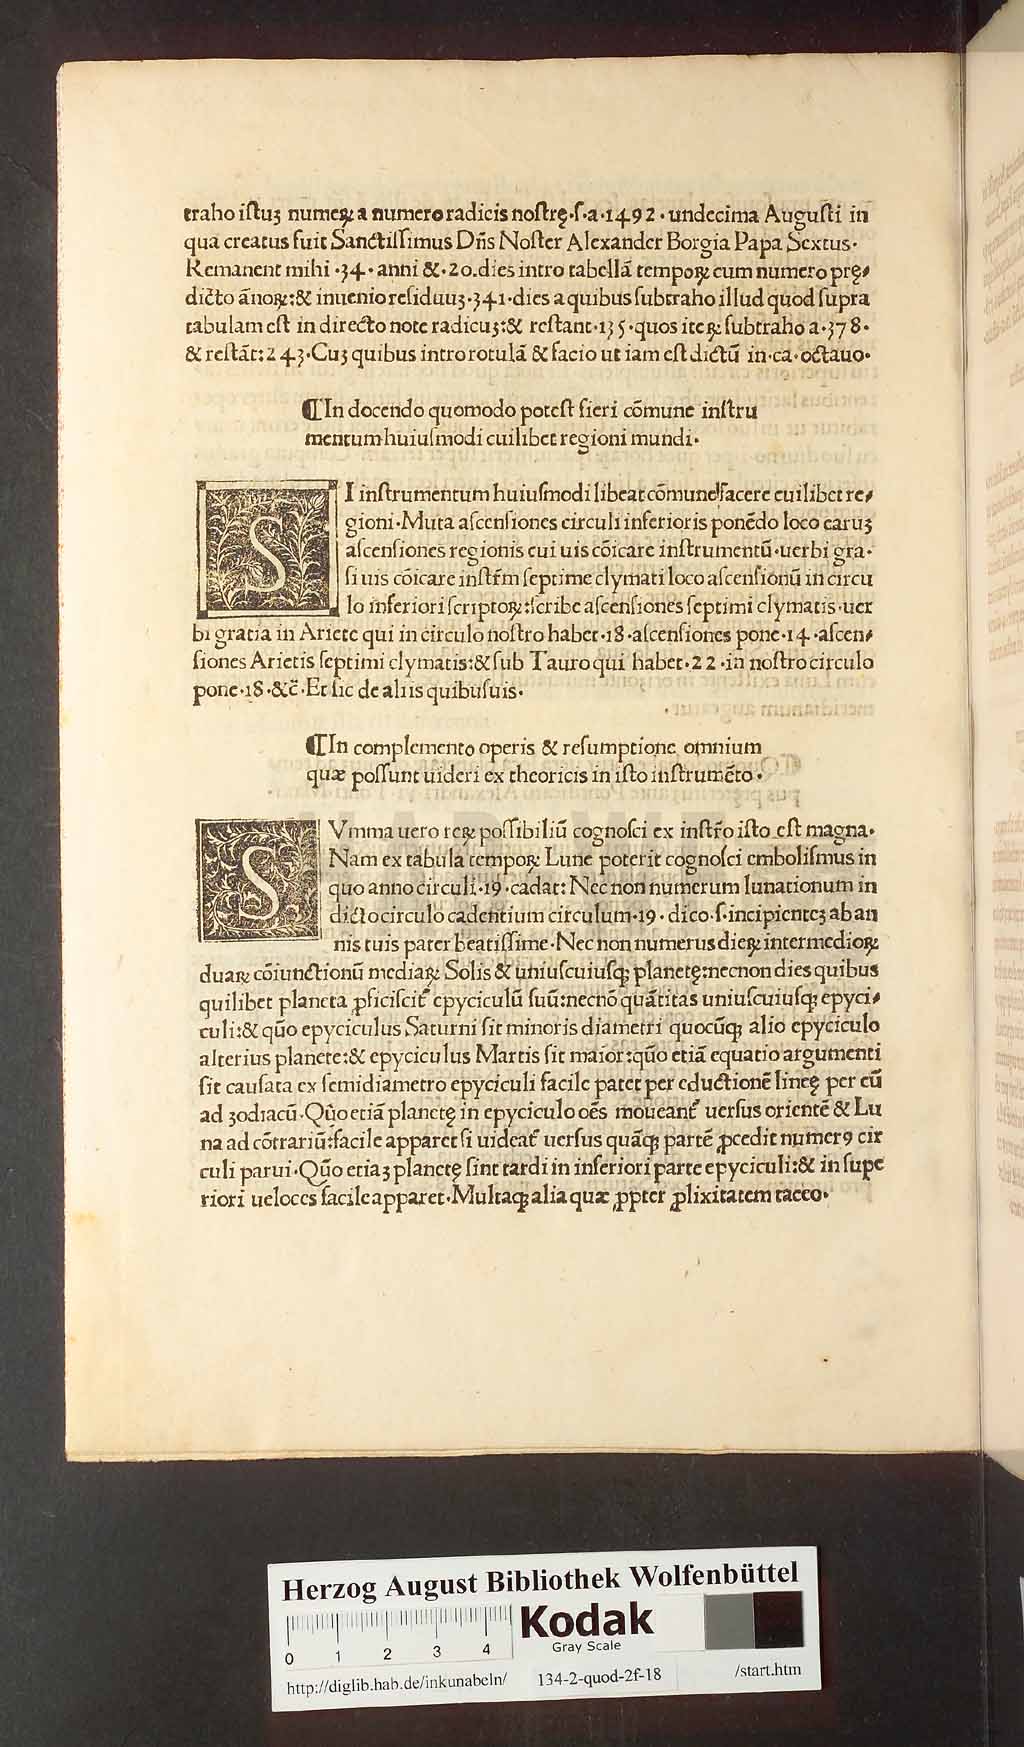 traho iſtuꝫ numeꝝ a numero radicis noſtrę·ſ·a·1492·undecima Auguſti in
qua creatus fuit Sanctiſſimus Dn̄s Noſter Alexander Borgia Papa Sextus·
Remanent mihi·34·anni &·20.dies intro tabellā tempoꝝ cum numero prę⸗
dicto ānoꝝ:& inuenio reſiduuꝫ·341·dies a quibus ſubtraho illud quod ſupra
tabulam eſt in directo note radicuꝫ:& reſtant·135·quos iteꝝ ſubtraho a·378·
& reſtāt:243·Cuꝫ quibus intro rotulā & facio ut iam eſt dictū in·ca·octauo·
¶In docendo quomodo poteſt fieri cōmune inſtru
mentum huiuſmodi cuilibet regioni mundi·
SI inſtrumentum huiuſmodi libeat cōmune facere cuilibet re⸗
gioni·Muta aſcenſiones circuli inferioris ponēdo loco earuꝫ
aſcenſiones regionis cui uis cōicare inſtrumentū·uerbi gra·
ſi uis cōicare inſtr̄m ſeptime clymati loco aſcenſionū in circu
lo inferiori ſcriptoꝝ:ſcribe aſcenſiones ſeptimi clymatis·uer
bi gratia in Ariete qui in circulo noſtro habet·18·aſcenſiones pone·14·aſcen⸗
ſiones Arietis ſeptimi clymatis:& ſub Tauro qui habet·22·in noſtro circulo
pone·18·&c̄·Et ſic de aliis quibuſuis·
¶In complemento operis & reſumptione omnium
quæ poſſunt uideri ex theoricis in iſto inſtrumēto·
SVmma uero reꝝ poſſibiliū cognoſci ex inſtr̄o iſto eſt magna·
Nam ex tabula tempoꝝ Lune poterit cognoſci emboliſmus in
quo anno circuli·19·cadat:Nec non numerum lunationum in
dicto circulo cadentium circulum·19·dico·ſ·incipienteꝫ ab an
nis tuis pater beatiſſime·Nec non numerus dieꝝ intermedioꝝ
duaꝝ cōiunctionū mediaꝝ Solis & uniuſcuiuſqꝫ planetę:necnon dies quibus
quilibet planeta ꝓficiſcit᷑ epyciculū ſuū:necnō quātitas uniuſcuiuſqꝫ epyci⸗
culi:& qūo epyciculus Saturni ſit minoris diametri quocūqꝫ alio epyciculo
alterius planete:& epyciculus Martis ſit maior:qūo etiā equatio argumenti
ſit cauſata ex ſemidiametro epyciculi facile patet per eductionē lineę per eū
ad ʒodiacū·Qūo etiā planetę in epyciculo oēs moueant᷑ uerſus orientē & Lu
na ad cōtrariū:facile apparet ſi uideat᷑ uerſus quāqꝫ partē ꝓcedit numerꝰ cir
culi parui·Qūo etiaꝫ planetę ſint tardi in inferiori parte epyciculi:& in ſupe
riori ueloces facile apparet·Multaqꝫ alia quæ ꝓpter ꝓlixitatem taceo·
Herzog August Bibliothek Wolfenbüttel
Kodak
Gray Scale
0 1 2 3 4
http://diglib.hab.de/inkunabeln/ 134-2-quod-2f-18 /start.htm